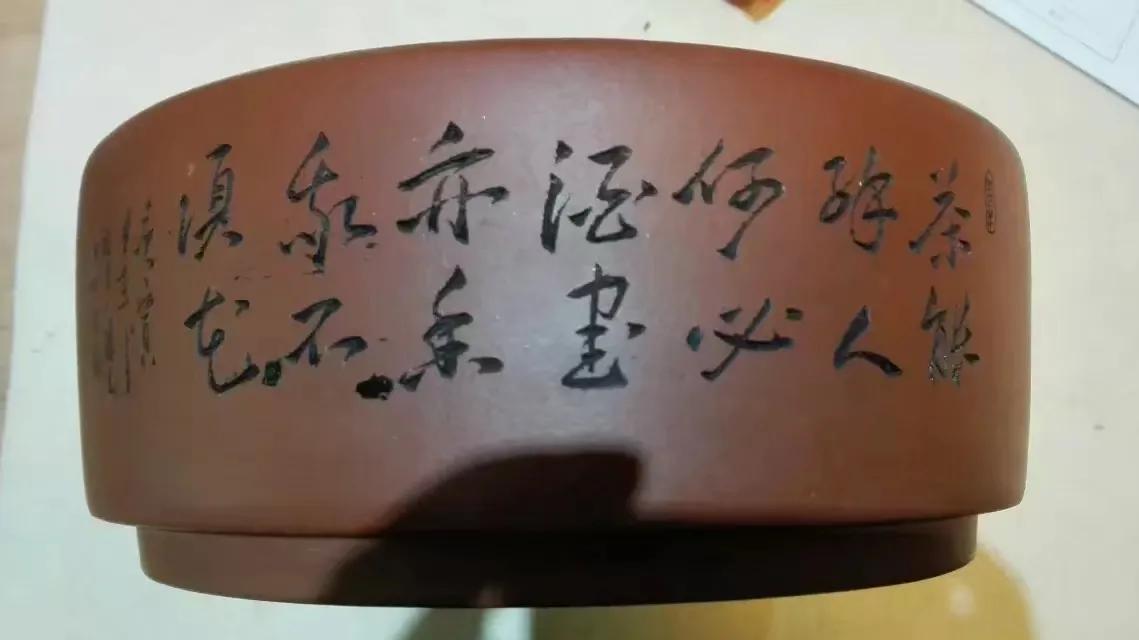 茶能
醉人
何必
酒書
亦香
我不
須花